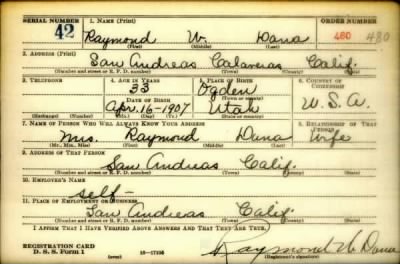 SERIAL NUMBER 1. NAME (Print) ORDER NUMBER
42 Raymond W. Dana 480 480
(First) (Middle) (Last)
2. ADDRESS (Print)
San Andreas Calaveras Calif.
(Number and street or R. F. D. number) (Town) (County) (State)
3. TELEPHONE 4. AGE IN YEARS 5. PLACE OF BIRTH 6. COUNTRY OF CITIZENSHIP
33 Ogden
DATE OF BIRTH (Town or county)
Apr. 16-1907 Utah U.S.A.
(Exchange) (Number) (Mo.) (Day) (Yr.) (State or country)
7. NAME OF PERSON WHO WILL ALWAYS KNOW YOUR ADDRESS 8. RELATIONSHIP OF THAT PERSON
Mrs. Raymond Dana Wife
(Mr., Mrs., Miss) (First) (Middle) (Last)
9. ADDRESS OF THAT PERSON
San Andreas Calif.
(Number and street or R. F. D. number) (Town) (County) (State)
10. EMPLOYER'S NAME
self-
11. PLACE OF EMPLOYMENT OR BUSINESS
San Andreas Calif.
(Number and street or R. F. D. number) (Town) (County) (State)
I AFFIRM THAT I HAVE VERIFIED ABOVE ANSWERS AND THAT THEY ARE TRUE.
REGISTRATION CARD
D. S. S. Form 1 (over) Raymond W Dana
(Registrant's signature)